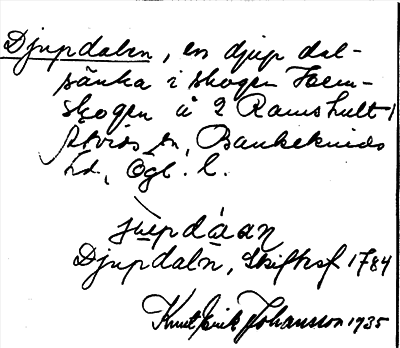 Djupdalen, en djup dal-
sänka i skogen Hem-
skogen å 2 Ramshult,
Åtvids sn, Bankekinds
hd, Ögl. l.
jupdáan
Djupdaln, Skiftesf 1784
Knut Erik Johansson 1935